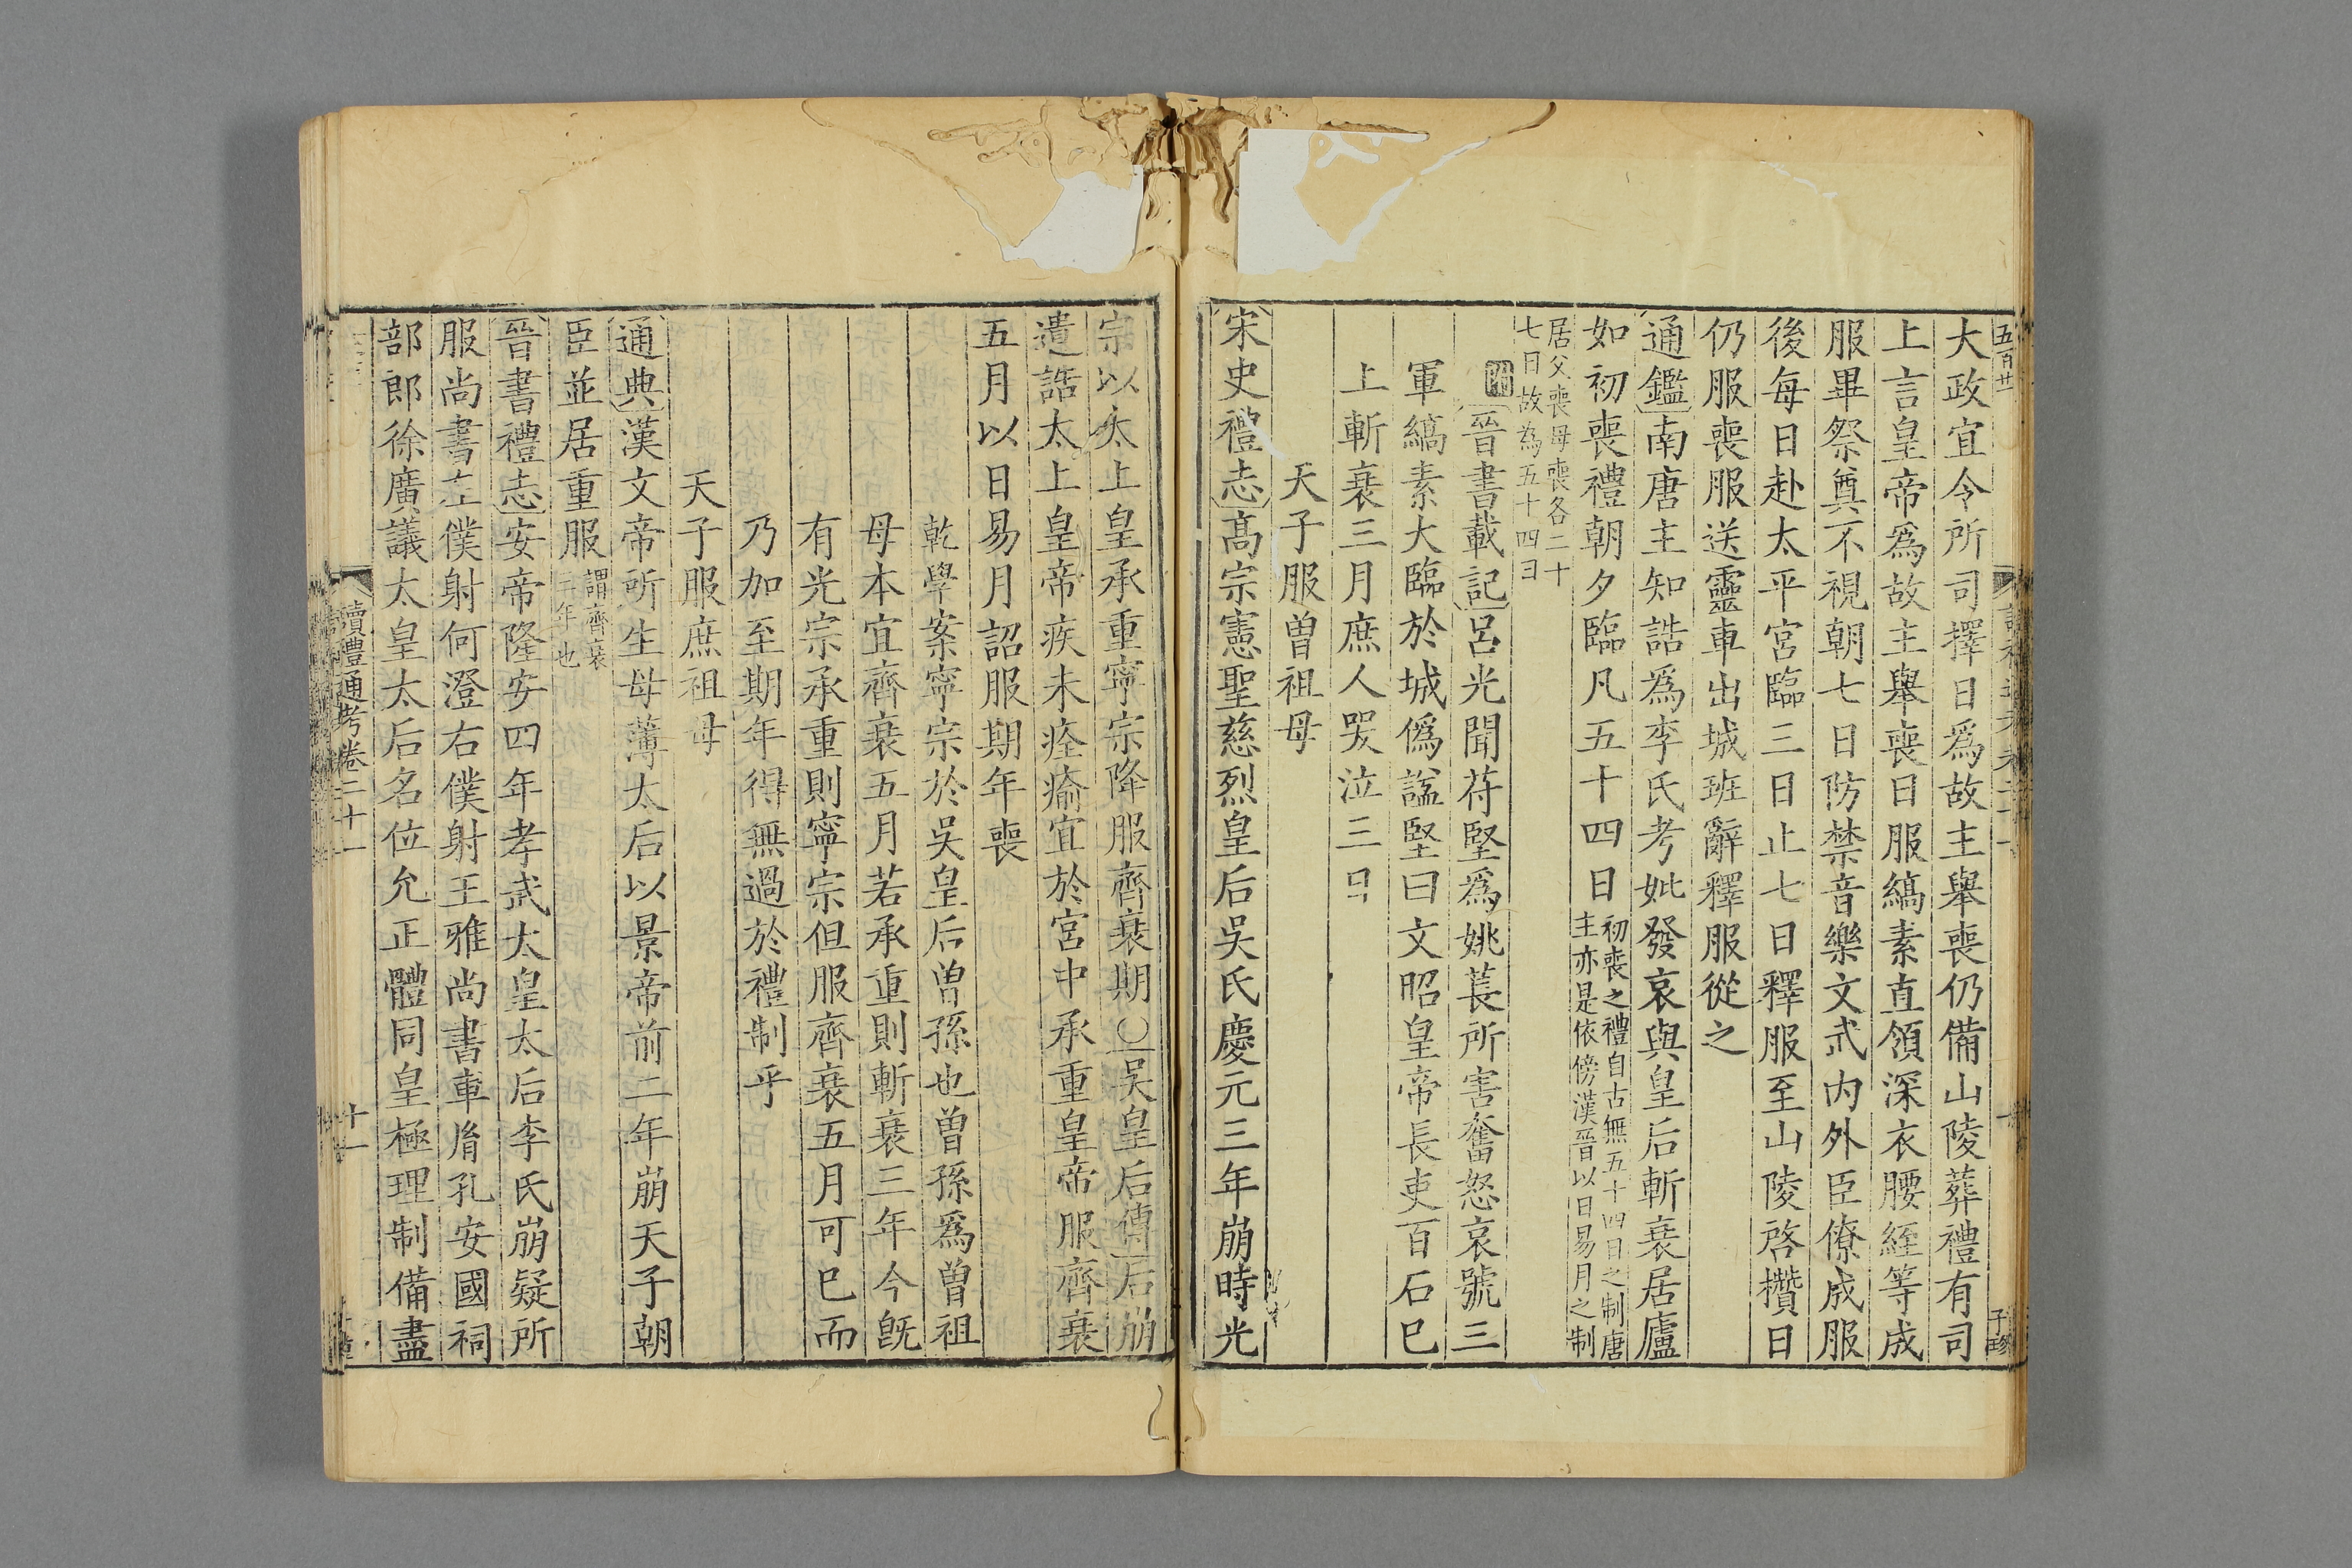 大政宜令所司擇日爲故主舉喪仍備山陵葬禮有司
上言皇帝爲故主舉喪日服縞素直領深衣腰絰等成
服畢祭奠不視朝七日防禁音樂文武內外臣僚成服
後每日赴太平宮臨三日止七日釋服至山陵啓攢日
仍服喪服送靈車出城班辭釋服從之
通鑑南唐主知誥爲李氏考妣發哀與皇后斬衰居廬
如初喪禮朝夕臨凡五十四日初喪之禮自古無五十四日之制唐
主亦是依傍漢晉以日易月之制
居父喪母喪各二十
七日故為五十四日
附晉書載記呂光聞苻堅爲姚萇所害奮怒哀號三
軍縞素大臨於城僞諡堅曰文昭皇帝長吏百石巳
上斬衰三月庶人哭泣三日
天子服曽祖母
宋史禮志高宗憲聖慈烈皇后吳氏慶元三年崩時光
宗以太上皇承重寧宗降服齊衰期〇吳皇后傳后崩
遺誥太上皇帝疾未痊瘉宜於宮中承重皇帝服齊衰
五月以日易月詔服期年喪
乾學案寧宗於吳皇后曽孫也曽孫爲曽祖
母本宜齊衰五月若承重則斬衰三年今旣
有光宗承重則寧宗但服齊衰五月可巳而
乃加至期年得無過於禮制乎
天子服庶祖母
通典漢文帝所生母薄太后以景帝前二年崩天子朝
臣並居重服謂齊衰
三年也
晉書禮志安帝隆安四年孝武太皇太后李氏崩疑所
服尚書左僕射何澄右僕射王雅尚書車胤孔安國祠
部郎徐廣議太皇太后名位允正體同皇極理制備盡
讀禮通考卷二十一
十一